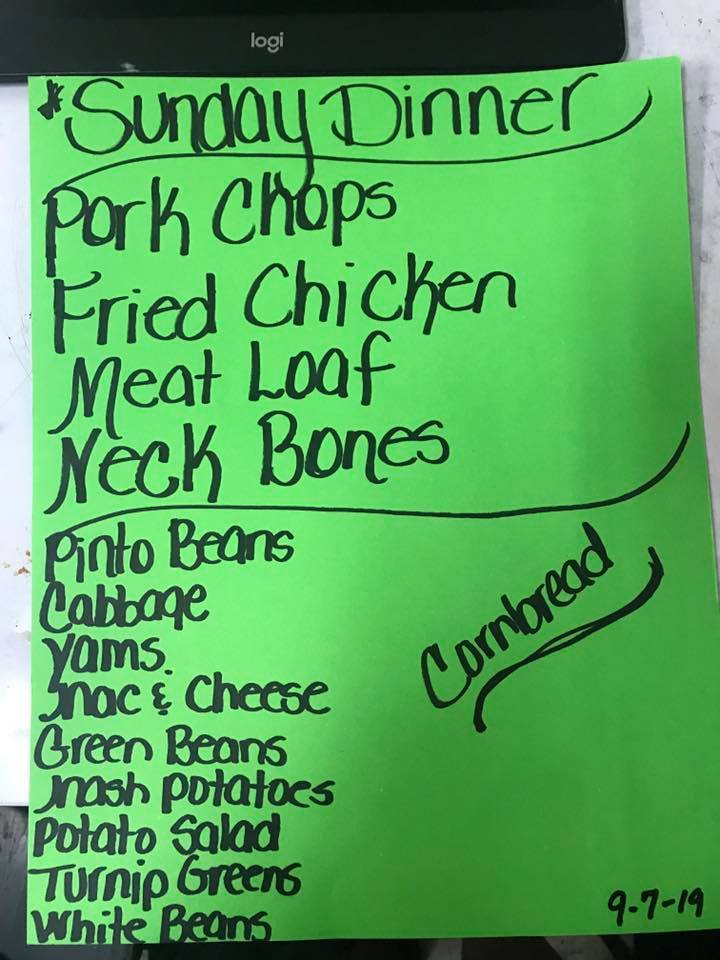 logi
*Sunday Dinner
Pork Chops
Fried Chicken
Meat Loaf
Neck Bones
Pinto Beans
Cabbage
Yams
Mac & Cheese
Green Beans
Mash Potatoes
Potato Salad
Turnip Greens
White Beans
Cornbread
9-7-19